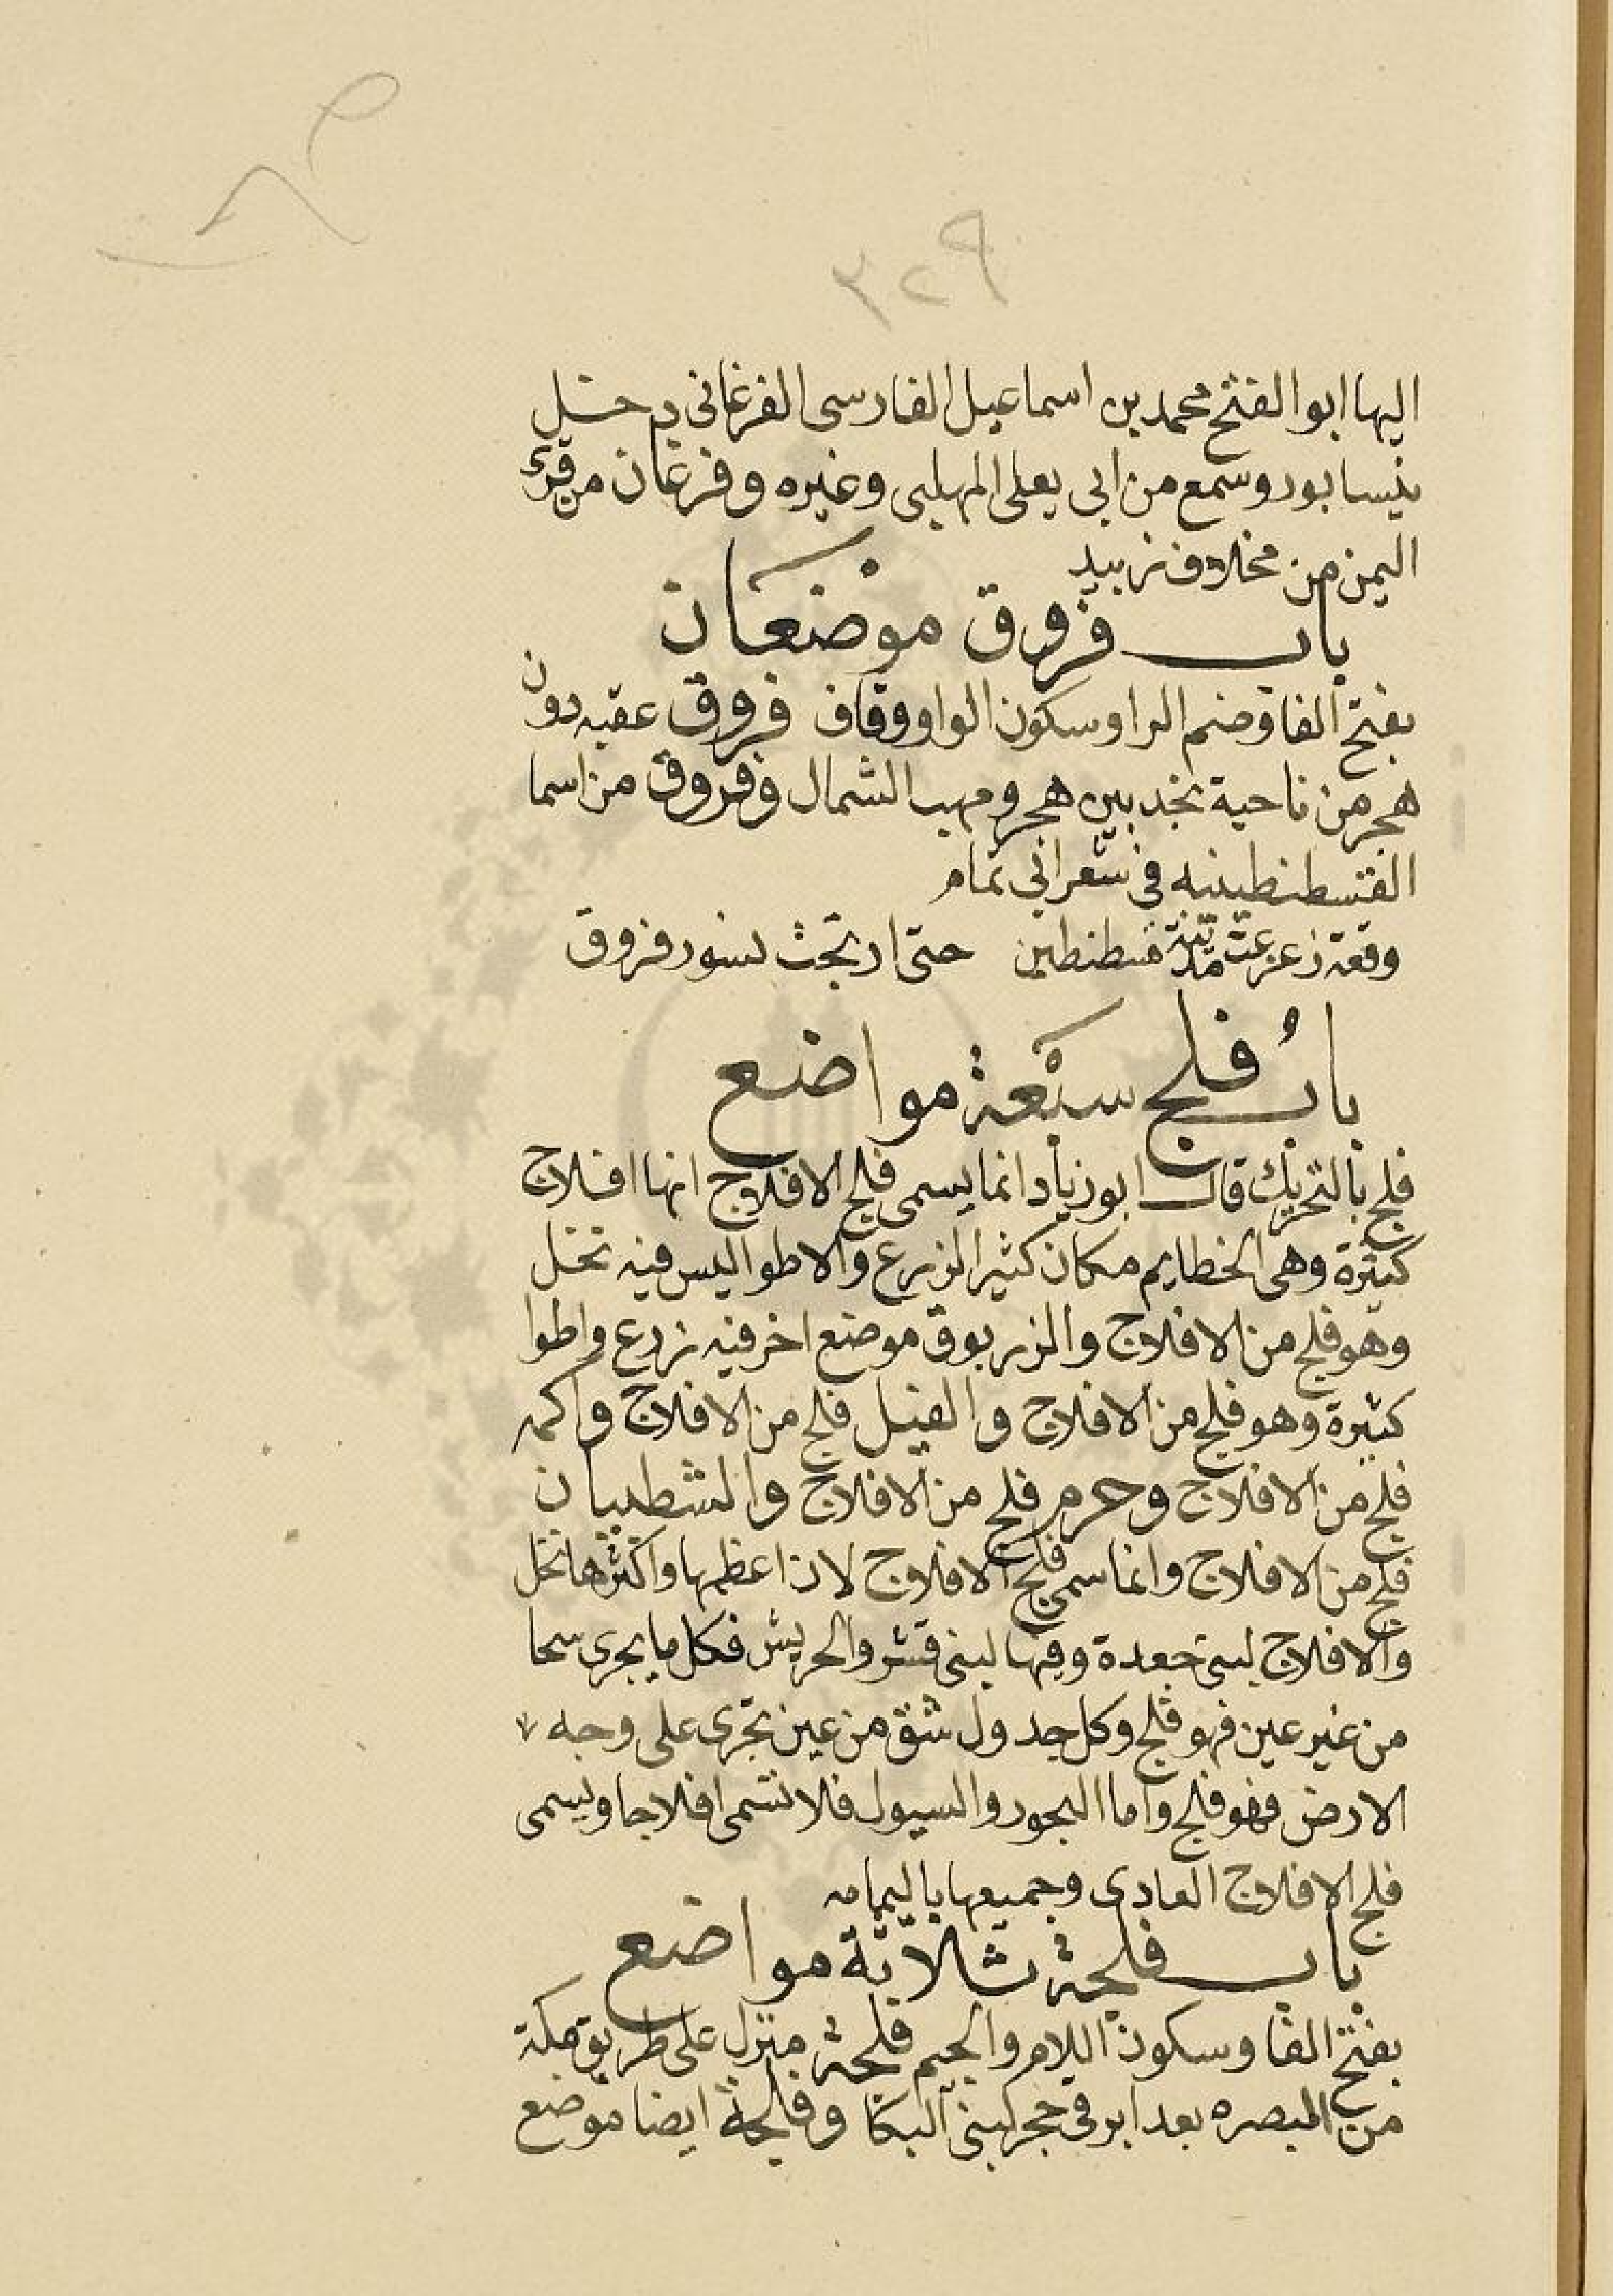 ٣٢٩
اليها ابو الفتح محمد بن اسماعيل الفارسى الفرغانى دخل
بنيسابور وسمع من ابى يعلى المهلبى وغيره وفرغان من قرى
اليمن من مخلاف زبيد
باب فروق موضعان
بفتح الفا وضم الرا وسكون الواو وقاف فروق عقبه دون
هجر من ناحية نجد بين هجر ومهب الشمال وفروق من اسما
القسطنطينيه فى شعر ابى تمام
وقعة زعزعت مدينة قسطنطين حتى ارتجت بسور فروق
باب فلج سبعة مواضع
فلج بالتحريك قال ابو زياد انما يسمى فلج الافلاج انها افلاج
كثيرة وهى الخطايم مكان كثير الزرع والاطوا ليس فيه نخل
وهو فلج من الافلاج والزربوق موضع اخر فيه زرع واطوا
كثيرة وهو فلج من الافلاج والفيل فلج من الافلاج واكمه
فلج من الافلاج وحرم فلج من الافلاج والشطبان
فلج من الافلاج وانما سمى فلج الافلاج لان اعظمها واكثرها نخل
والافلاج لبنى جعدة وفيها لبنى قشر والحريش فكل ما يجرى سحا
من غير عين فهو فلج وكل جدول شق من عين تجرى على وجه
الارض فهو فلج واما البحور والسيول فلا تسمى افلاجا ويسمى
فلج الافلاج العادى وجميعها باليمامه
باب فلجة ثلاثة مواضع
بفتح الفا وسكون اللام والجيم فلجة منزل على طريق مكة
من البصره بعد ابرقى حجر لبنى البكا وفلجة ايضا موضع